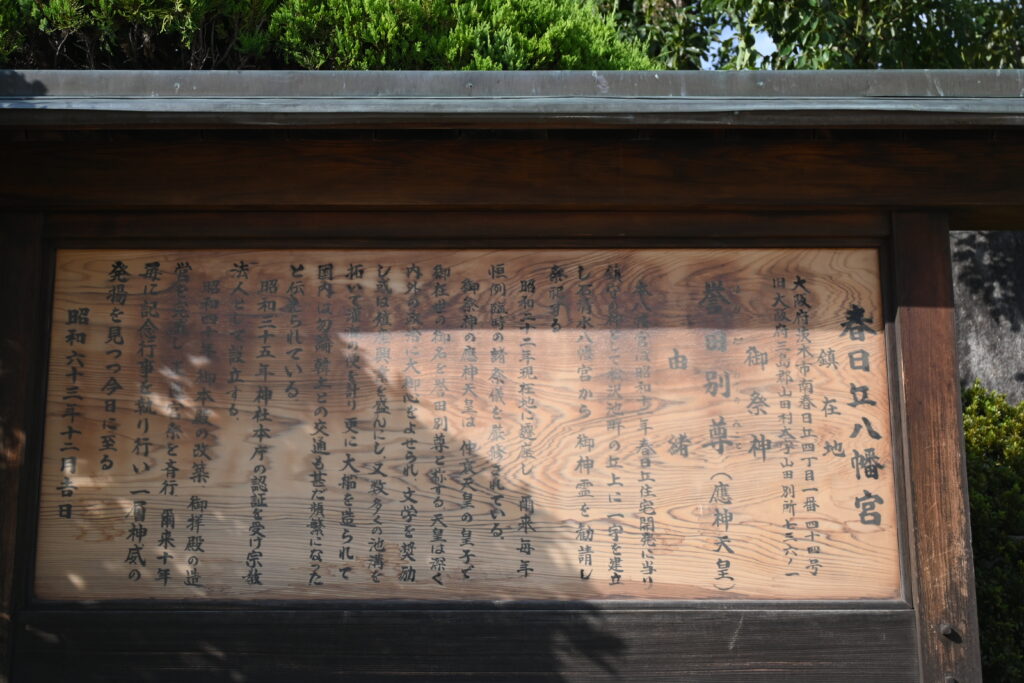 春日丘八幡宮
鎮在地
大阪府茨木市南春日丘四丁目一番四十四号
旧大阪府三島郡山田村大字山田別所七三六ノ一
御祭神
誉田別尊（應神天皇）
由緒
八幡宮は昭和十年春日丘住宅開発に当り
鎮守 として 池町の丘上に一宇を建立
し石清水八幡宮から御神霊を勧請し
祭祀する
昭和二十二年現在地に遷座し 爾来毎年
恒例臨時の諸祭儀を厳修されている。
御祭神の應神天皇は 仲哀天皇の皇子で
御在世の御名を誉田別尊と称する天皇は深く
内外の政治に大御心をよせられ 文学を奨励
し或は産業 を盛んにし又数多くの池溝を
拓いて灌漑の便を計り更に大船を造られて
国内は勿論韓土との交通も甚だ頻繁になった
と伝えられている
昭和三十五年神社本庁の認証を受け宗教
法人として設立する
昭和四十 年 御本殿の改築 御拝殿の造
営を完遂し 祭を斉行 爾来十年
毎に記念行事を執り行い 一層神威の
発揚を見つつ今日に至る
昭和六十三年十二月吉日